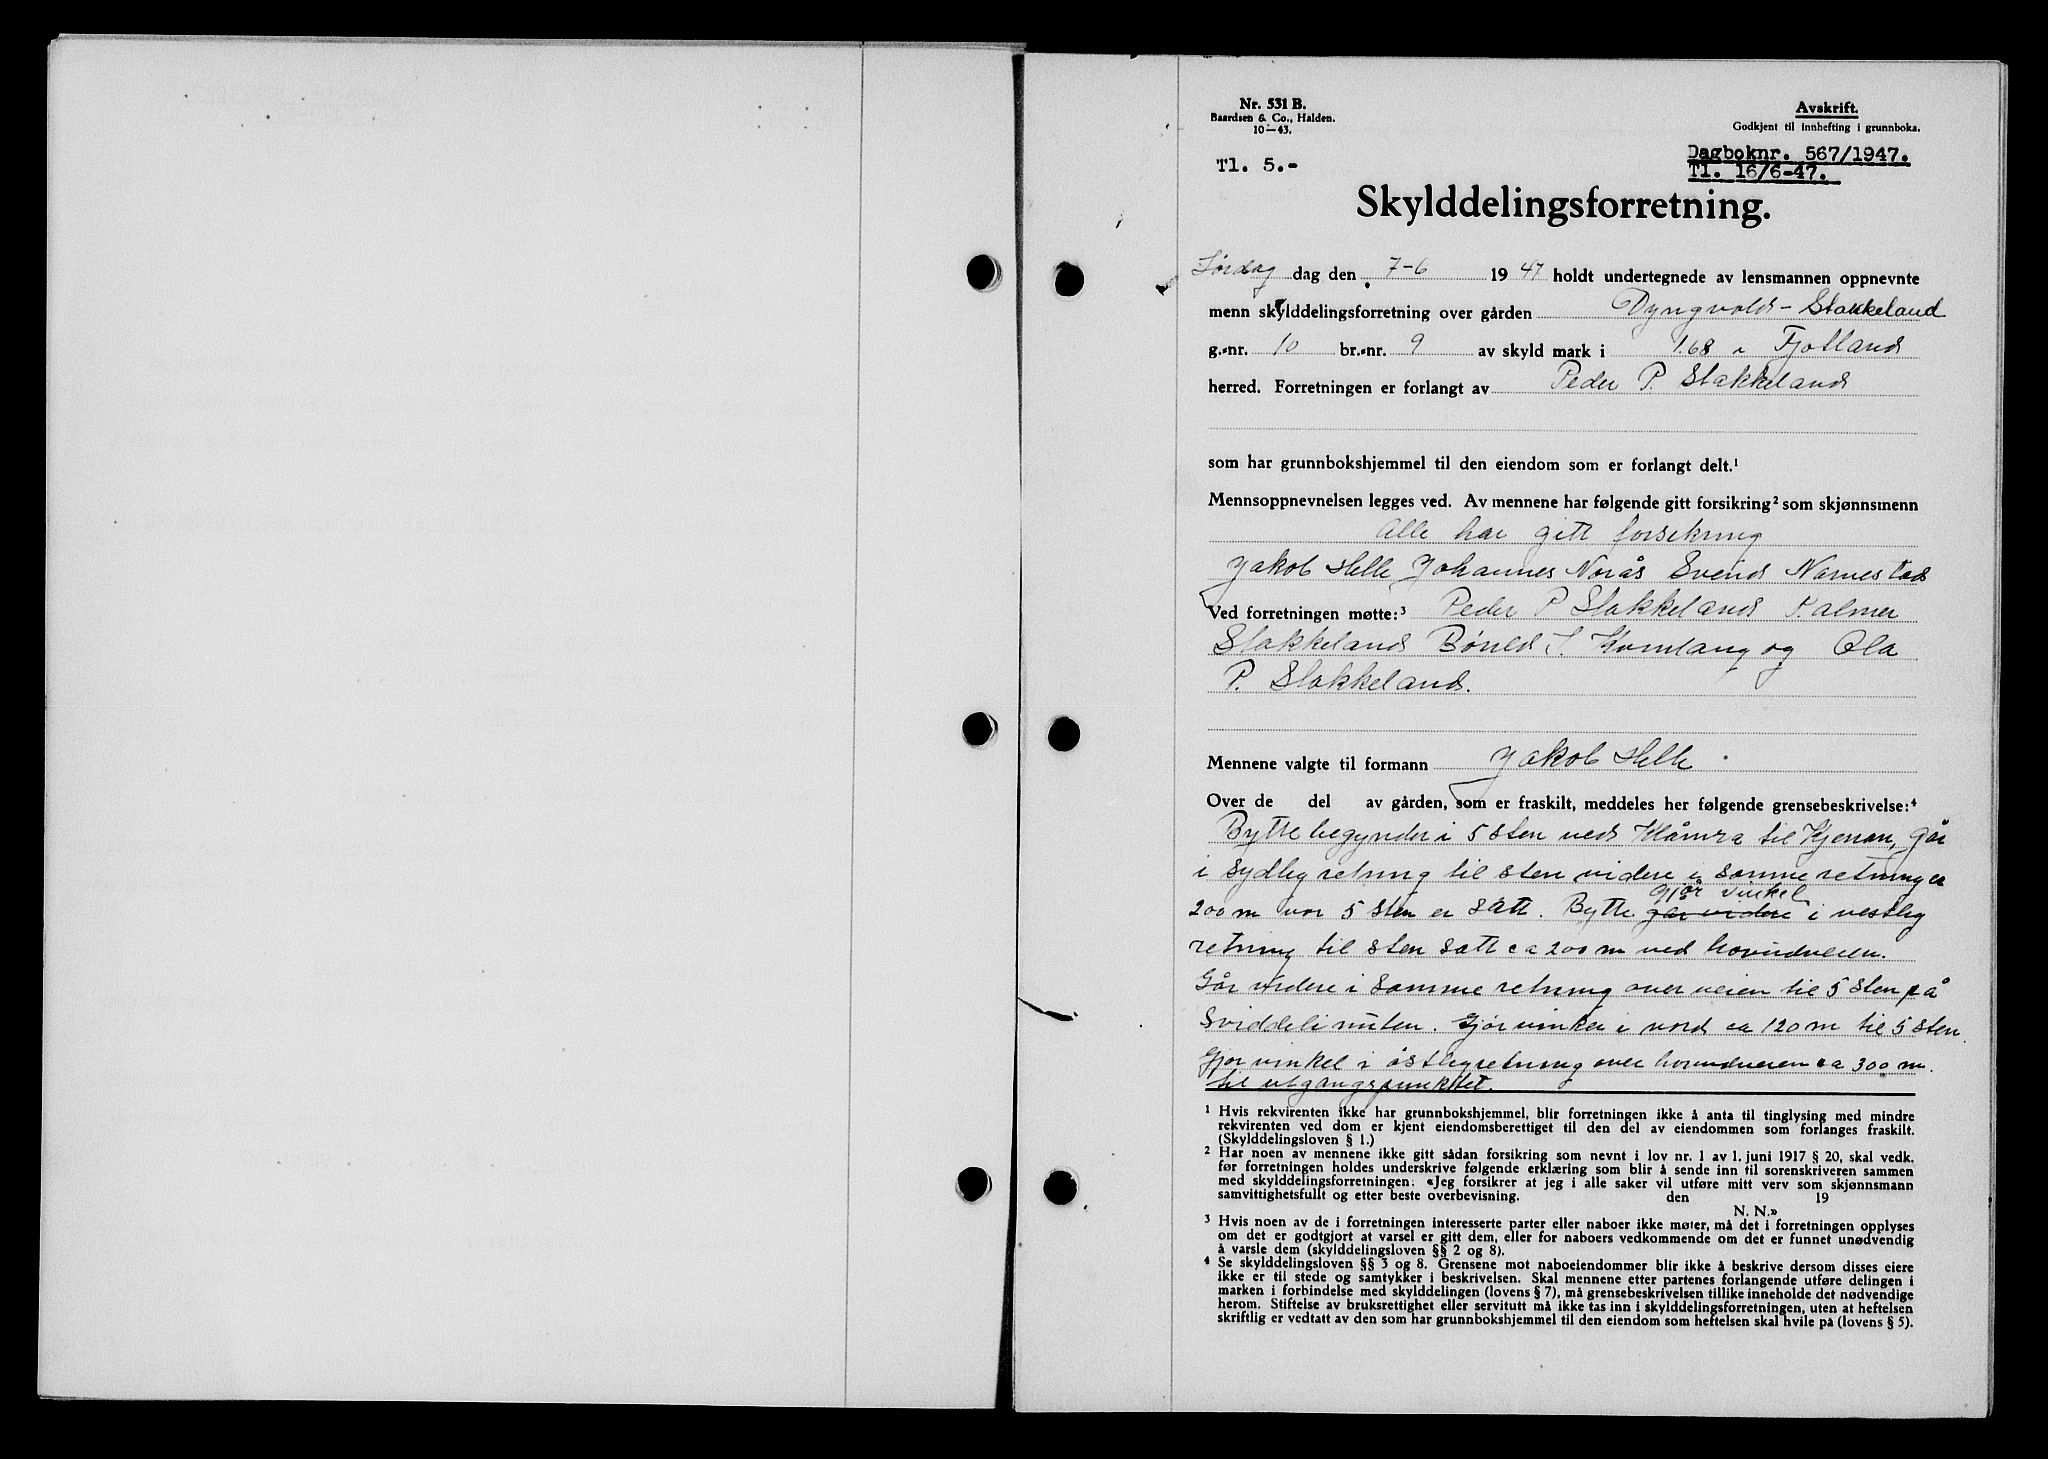 Nr. 531 B.
Baardsen & Co., Halden.
10—43.
Avskrift.
Godkjent til innhefting i grunnboka.
Tl. 5.-
Dagboknr. 567/1947.
Tl. 16/6-47.
Skylddelingsforretning.
Lördag dag den 7-6 1947 holdt undertegnede av lensmannen oppnevnte
menn skylddelingsforretning over gården Dyngvold - Stakkeland
g.-nr. 10 br.-nr. 9 av skyld mark i 1.68 i Fjotland
herred. Forretningen er forlangt av Peder P. Stakkeland
som har grunnbokshjemmel til den eiendom som er forlangt delt.¹
Mennsoppnevnelsen legges ved. Av mennene har følgende gitt forsikring² som skjønnsmenn
Alle har gitt forsikring
Jakob Helle Johannes Norås Svend Narvestad
Ved forretningen møtte:³ Peder P Stakkeland Palmer
Stakkeland S. og Ola
P. Stakkeland.
Mennene valgte til formann Jakob Helle
Over de del av gården, som er fraskilt, meddeles her følgende grensebeskrivelse:⁴
Bytte begynder i 5 sten ved til går
i sydlig retning til sten videre i samme retning ca
200 m vor 5 sten er satt. Bytte går videre gjör vinkel i vestlig
retning til sten satt ca 200 m ved hovudveien.
Går videre i samme retning over veien til 5 sten på
. Gjör vinkel i nord ca 120 m til 5 sten.
Gjör vinkel i östlig retning over hovudveien ca 300 m.
til utgangspunktet.
¹ Hvis rekvirenten ikke har grunnbokshjemmel, blir forretningen ikke å anta til tinglysing med mindre
rekvirenten ved dom er kjent eiendomsberettiget til den del av eiendommen som forlanges fraskilt.
(Skylddelingsloven § 1.)
² Har noen av mennene ikke gitt sådan forsikring som nevnt i lov nr. 1 av 1. juni 1917 § 20, skal vedk.
før forretningen holdes underskrive følgende erklæring som blir å sende inn til sorenskriveren sammen
med skylddelingsforretningen: «Jeg forsikrer at jeg i alle saker vil utføre mitt verv som skjønnsmann
samvittighetsfullt og etter beste overbevisning. den 19
N. N.»
³ Hvis noen av de i forretningen interesserte parter eller naboer ikke møter, må det i forretningen opplyses
om det er godtgjort at varsel er gitt dem, eller for naboers vedkommende om det er funnet unødvendig
å varsle dem (skylddelingsloven §§ 2 og 8).
⁴ Se skylddelingsloven §§ 3 og 8. Grensene mot naboeiendommer blir ikke å beskrive dersom disses eiere
ikke er til stede og samtykker i beskrivelsen. Skal mennene etter partenes forlangende utføre delingen i
marken i forbindelse med skylddelingen (lovens § 7), må grensebeskrivelsen tillike inneholde det nødvendige
herom. Stiftelse av bruksrettighet eller servitutt må ikke tas inn i skylddelingsforretningen, uten at heftelsen
skriftlig er vedtatt av den som har grunnbokshjemmel til den eiendom som heftelsen skal hvile på (lovens § 5).